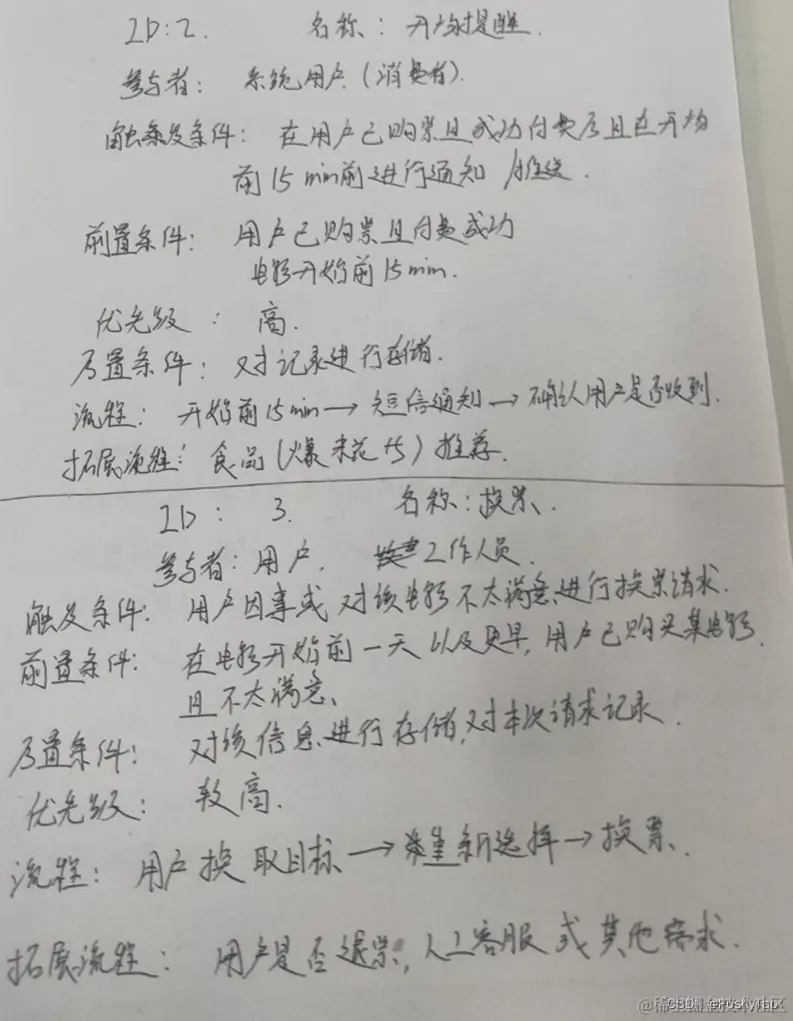 ID:2. 名称：开场提醒.
参与者：系统用户（消费者）.
触发条件：在用户已购票且成功付费后且在开场
前15min前进行通知/推送.
前置条件：用户已购票且付费成功
电影开始前15min.
优先级：高.
后置条件：对记录进行存储.
流程：开始前15min→短信通知→确认用户是否收到.
拓展流程：食品（爆米花等）推荐.
ID：3. 名称：换票.
参与者：用户, 工作人员.
触及条件：用户因事或对该电影不太满意、进行换票请求.
前置条件：在电影开始前一天以及更早，用户已购买某电影
且不太满意、
后置条件：对该信息进行存储,对本次请求记录.
优先级：较高.
流程：用户换取目标→重新选择→换票、
拓展流程：用户是否退票，人工客服或其他需求.